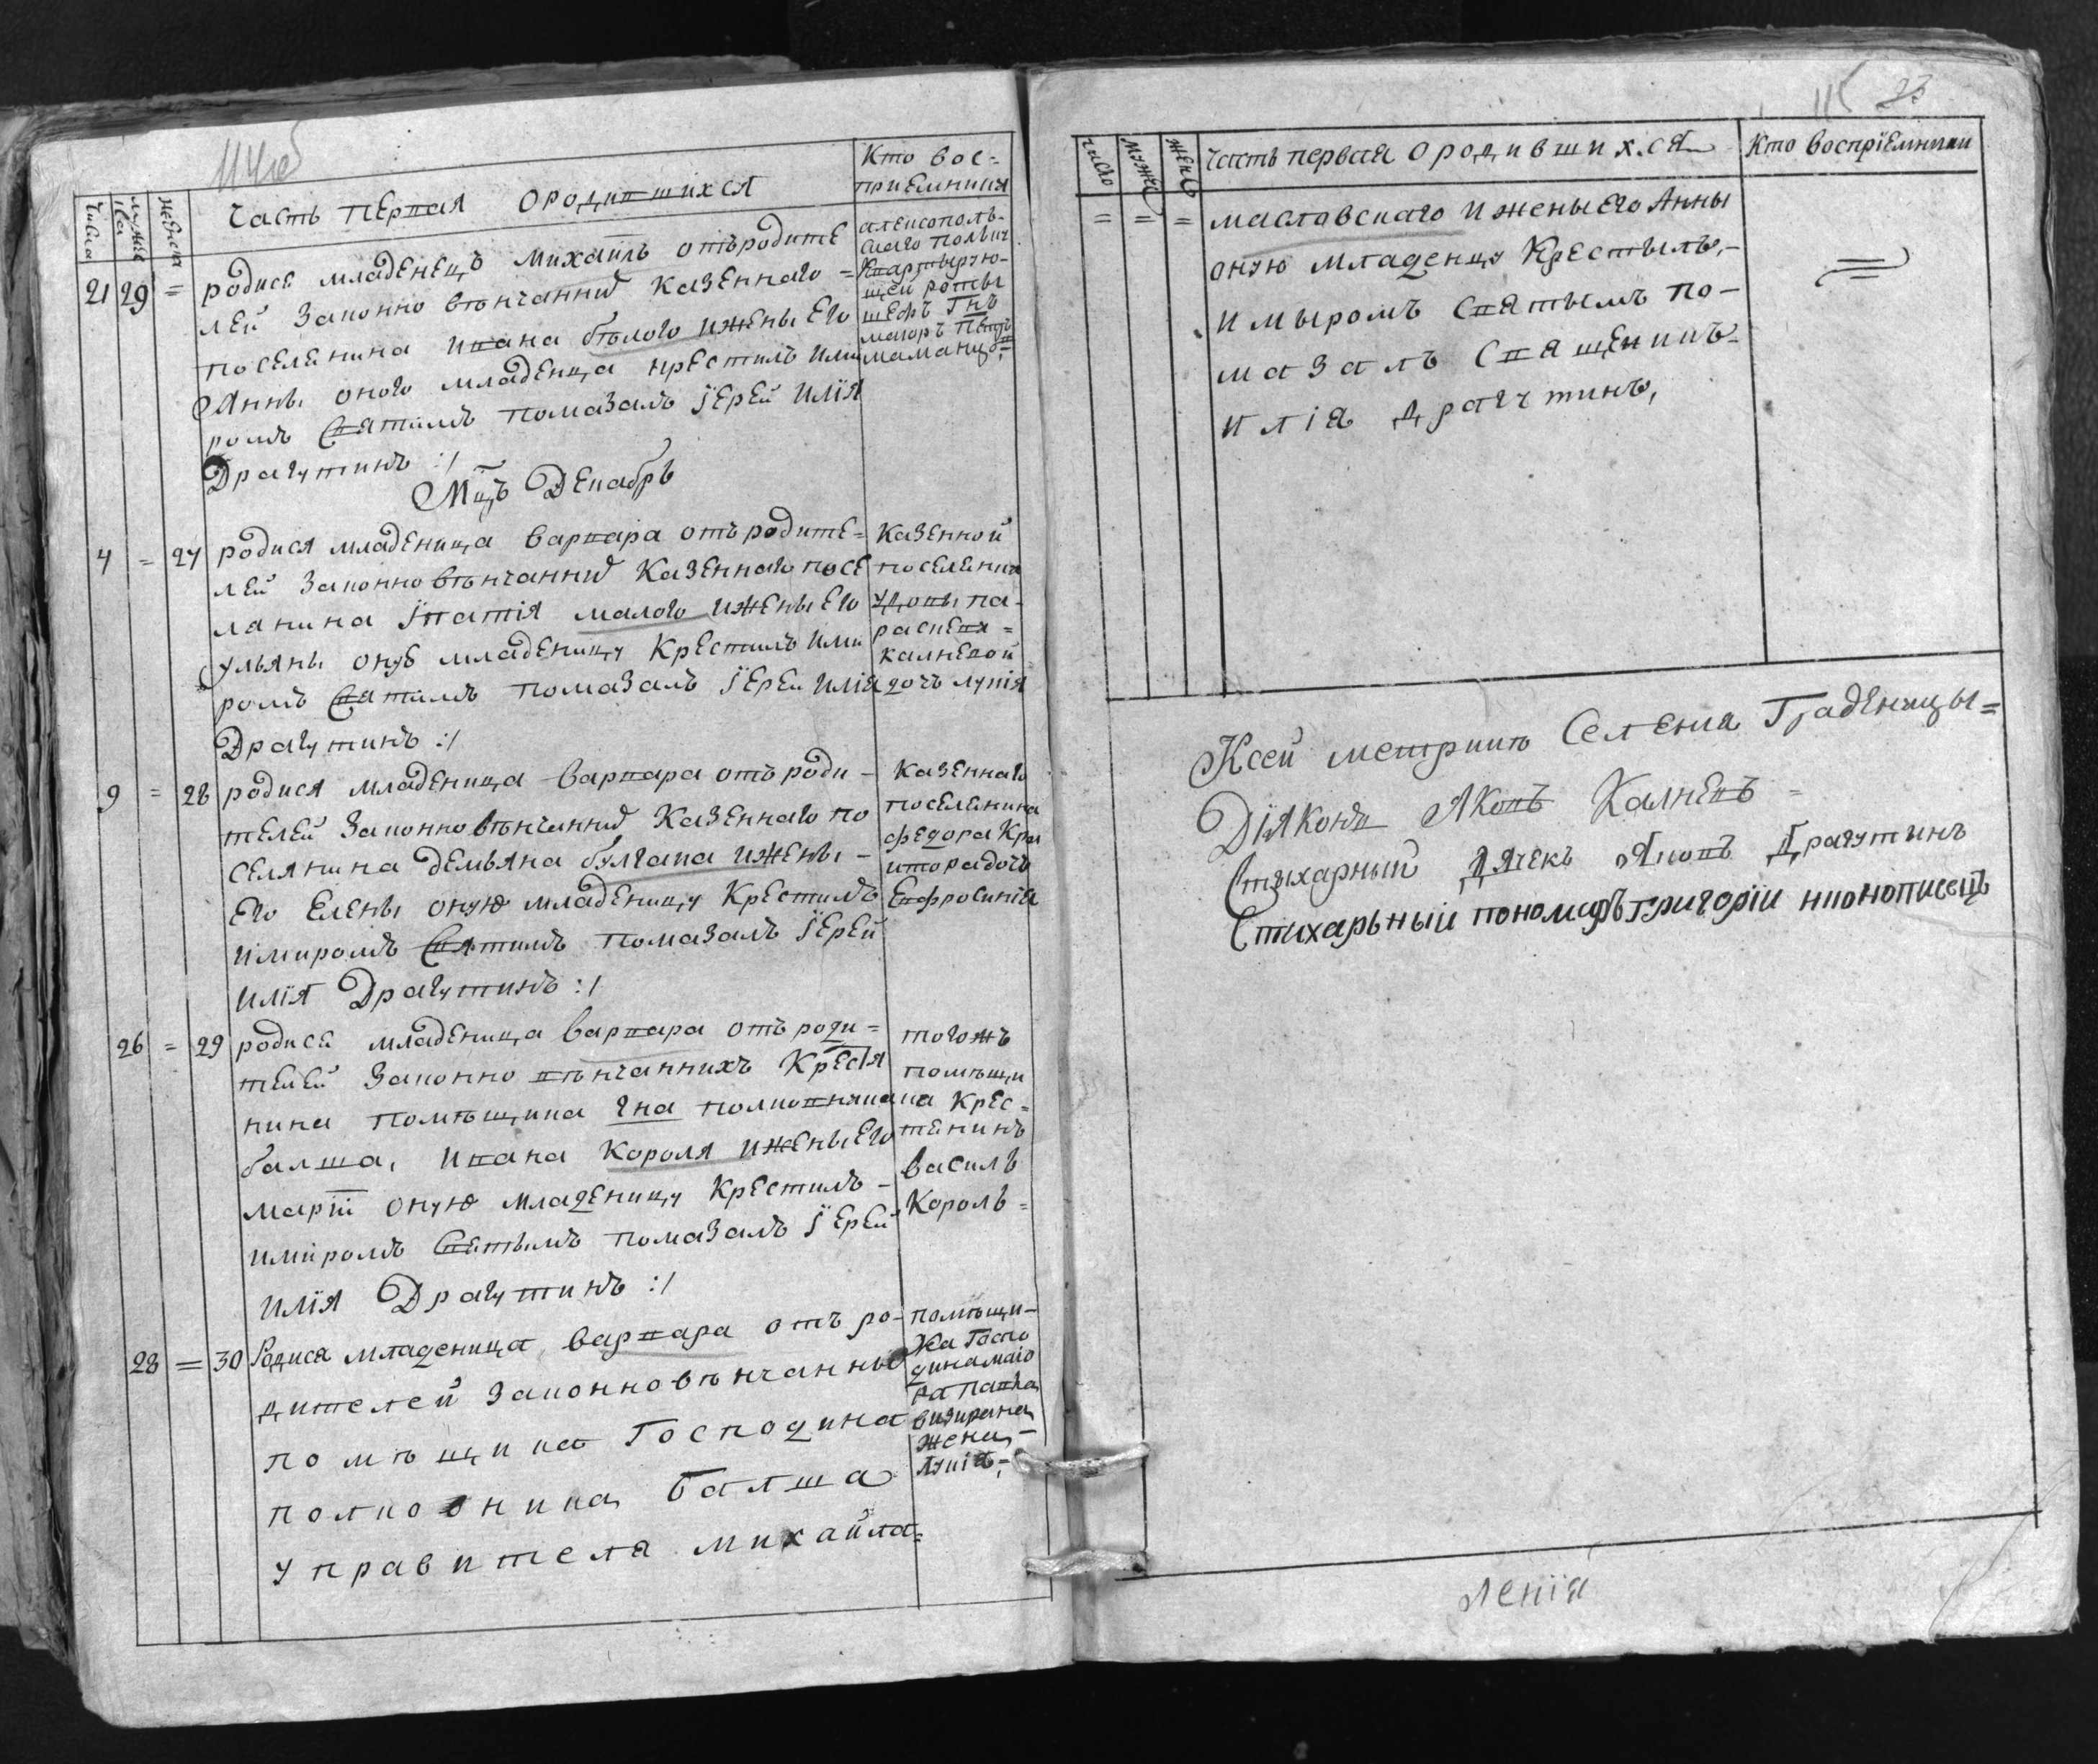 114об
Числа
мужеска
женска
Часть первая о родившихся
Кто вос=
приемники
21 29 =
родися младенецъ Михаилъ отъ родите
лей законно вѣнчанныхъ казенного =
поселенина Ивана бѣлого и жены его
Анны оного младенца крестилъ и ми
ромъ святимъ помазалъ їерей Илїя
Драгутинъ :/
алексополь-
скаго полъку
квартирую-
щей роты
шефъ Гнъ
маіоръ
Мцъ Декабрь
4 = 27
родися младеница Варвара отъ родите=
лей законно вѣнчанныхъ казенного посе
лянина Їпатія малого и жены его
ульяны оную младеницу крестилъ и ми
ромъ святимъ помазалъ їерей Илїя
Драгутинъ :/
казенной
поселенки
вдовы па-
раскевы =
калневой
дочь лукія
9 = 28
родися младеница Варвара отъ роди-
телей законно вѣнчанныхъ казенного по
селянина демьяна булгака и жены -
его Елены оную младеницу крестилъ
и миромъ святимъ помазалъ їерей
Илїя Драгутинъ :/
казенного
поселенина
федора
дочь
Евфросинія
26 = 29
родися младеница Варвара отъ роди=
телей законно вѣнчаннихъ крестя
нина помѣщика Гна полковника
балша, Ивана Короля и жены его
маріи оную младеницу крестилъ -
и миромъ святымъ помазалъ їерей
Илїя Драгутинъ :/
тогожъ
помѣщи
ка крес=
тянинъ
василь
Король =
28 = 30
Родися младеница Варвара отъ ро-
дителей законновѣнчанныхъ
помѣщика Господина
полковника Балша
управителя михайла=
помѣщи-
ка Госпо
дина маіо
ра павла
жена -
лукія;
115 23
число
мужес
женс
Часть первая о родившихся
Кто воспрїемники
= = =
масловскаго и жены его Анны
оную младенцу крестылъ,-
и мыромъ святымъ по-
мазалъ священникъ-
Илія Драгутинъ,
К сей метрики Селения Граденицы=
Діяконъ Яковъ Калневъ -
Стихарный дячекъ Яковъ Драгутинъ
Стихарьный пономаръ григорїи иконописецъ
ленїя